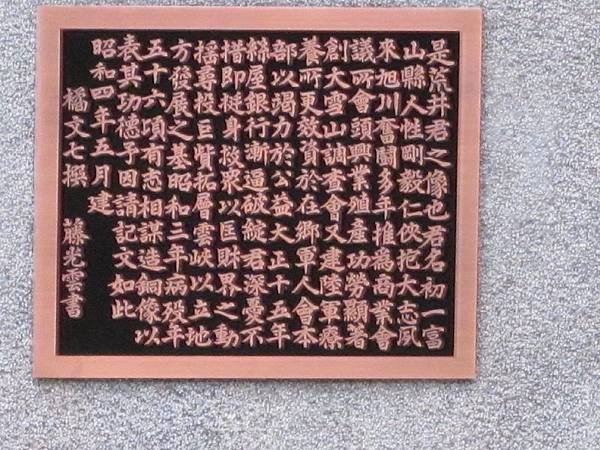 是荒井君之像也君名初一富
山縣人性剛毅仁俠抱大志夙
來旭川奮鬪多年推為商業會
議所會頭興業殖產功勞顯著
創大雪山調查會又建陸軍療
養所更效資於在鄉軍人會本
部以竭力於公益大正十五年
絲屋銀行漸逼破綻君深憂不
措即挺身投衆以匡財界之動
搖尋投巨貲拓層雲峽以立地
方發展之基昭和三年病歿年
五十六頃有志相謀造銅像以
表其功德予因請記文如此
昭和四年五月建
橘文七撰 藤光雲書